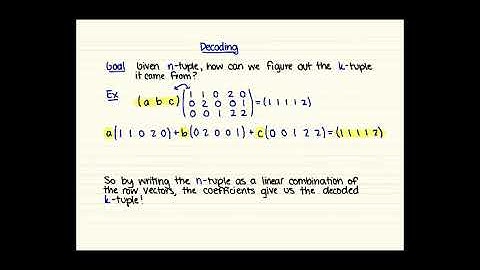 Decoding
Goal Given n-tuple, how can we figure out the k-tuple
it came from?
Ex (a b c) (1 1 0 2 0
0 2 0 0 1
0 0 1 2 2) = (1 1 1 1 2)
a(1 1 0 2 0) + b(0 2 0 0 1) + c(0 0 1 2 2) = (1 1 1 1 2)
So by writing the n-tuple as a linear combination of
the row vectors, the coefficients give us the decoded
k-tuple!